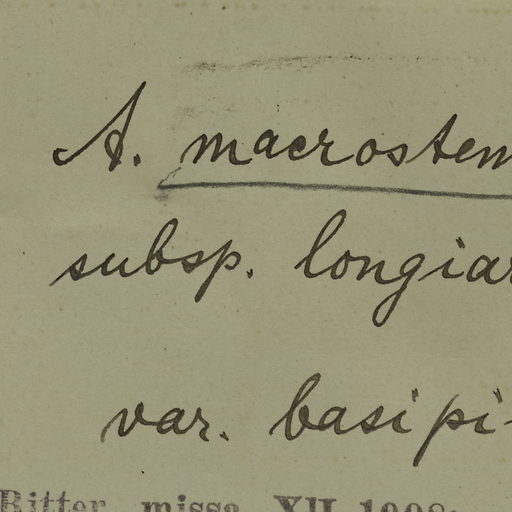 A. macrostem
subsp. longiar
var. basipi-
Ritter, missa XII 1908.